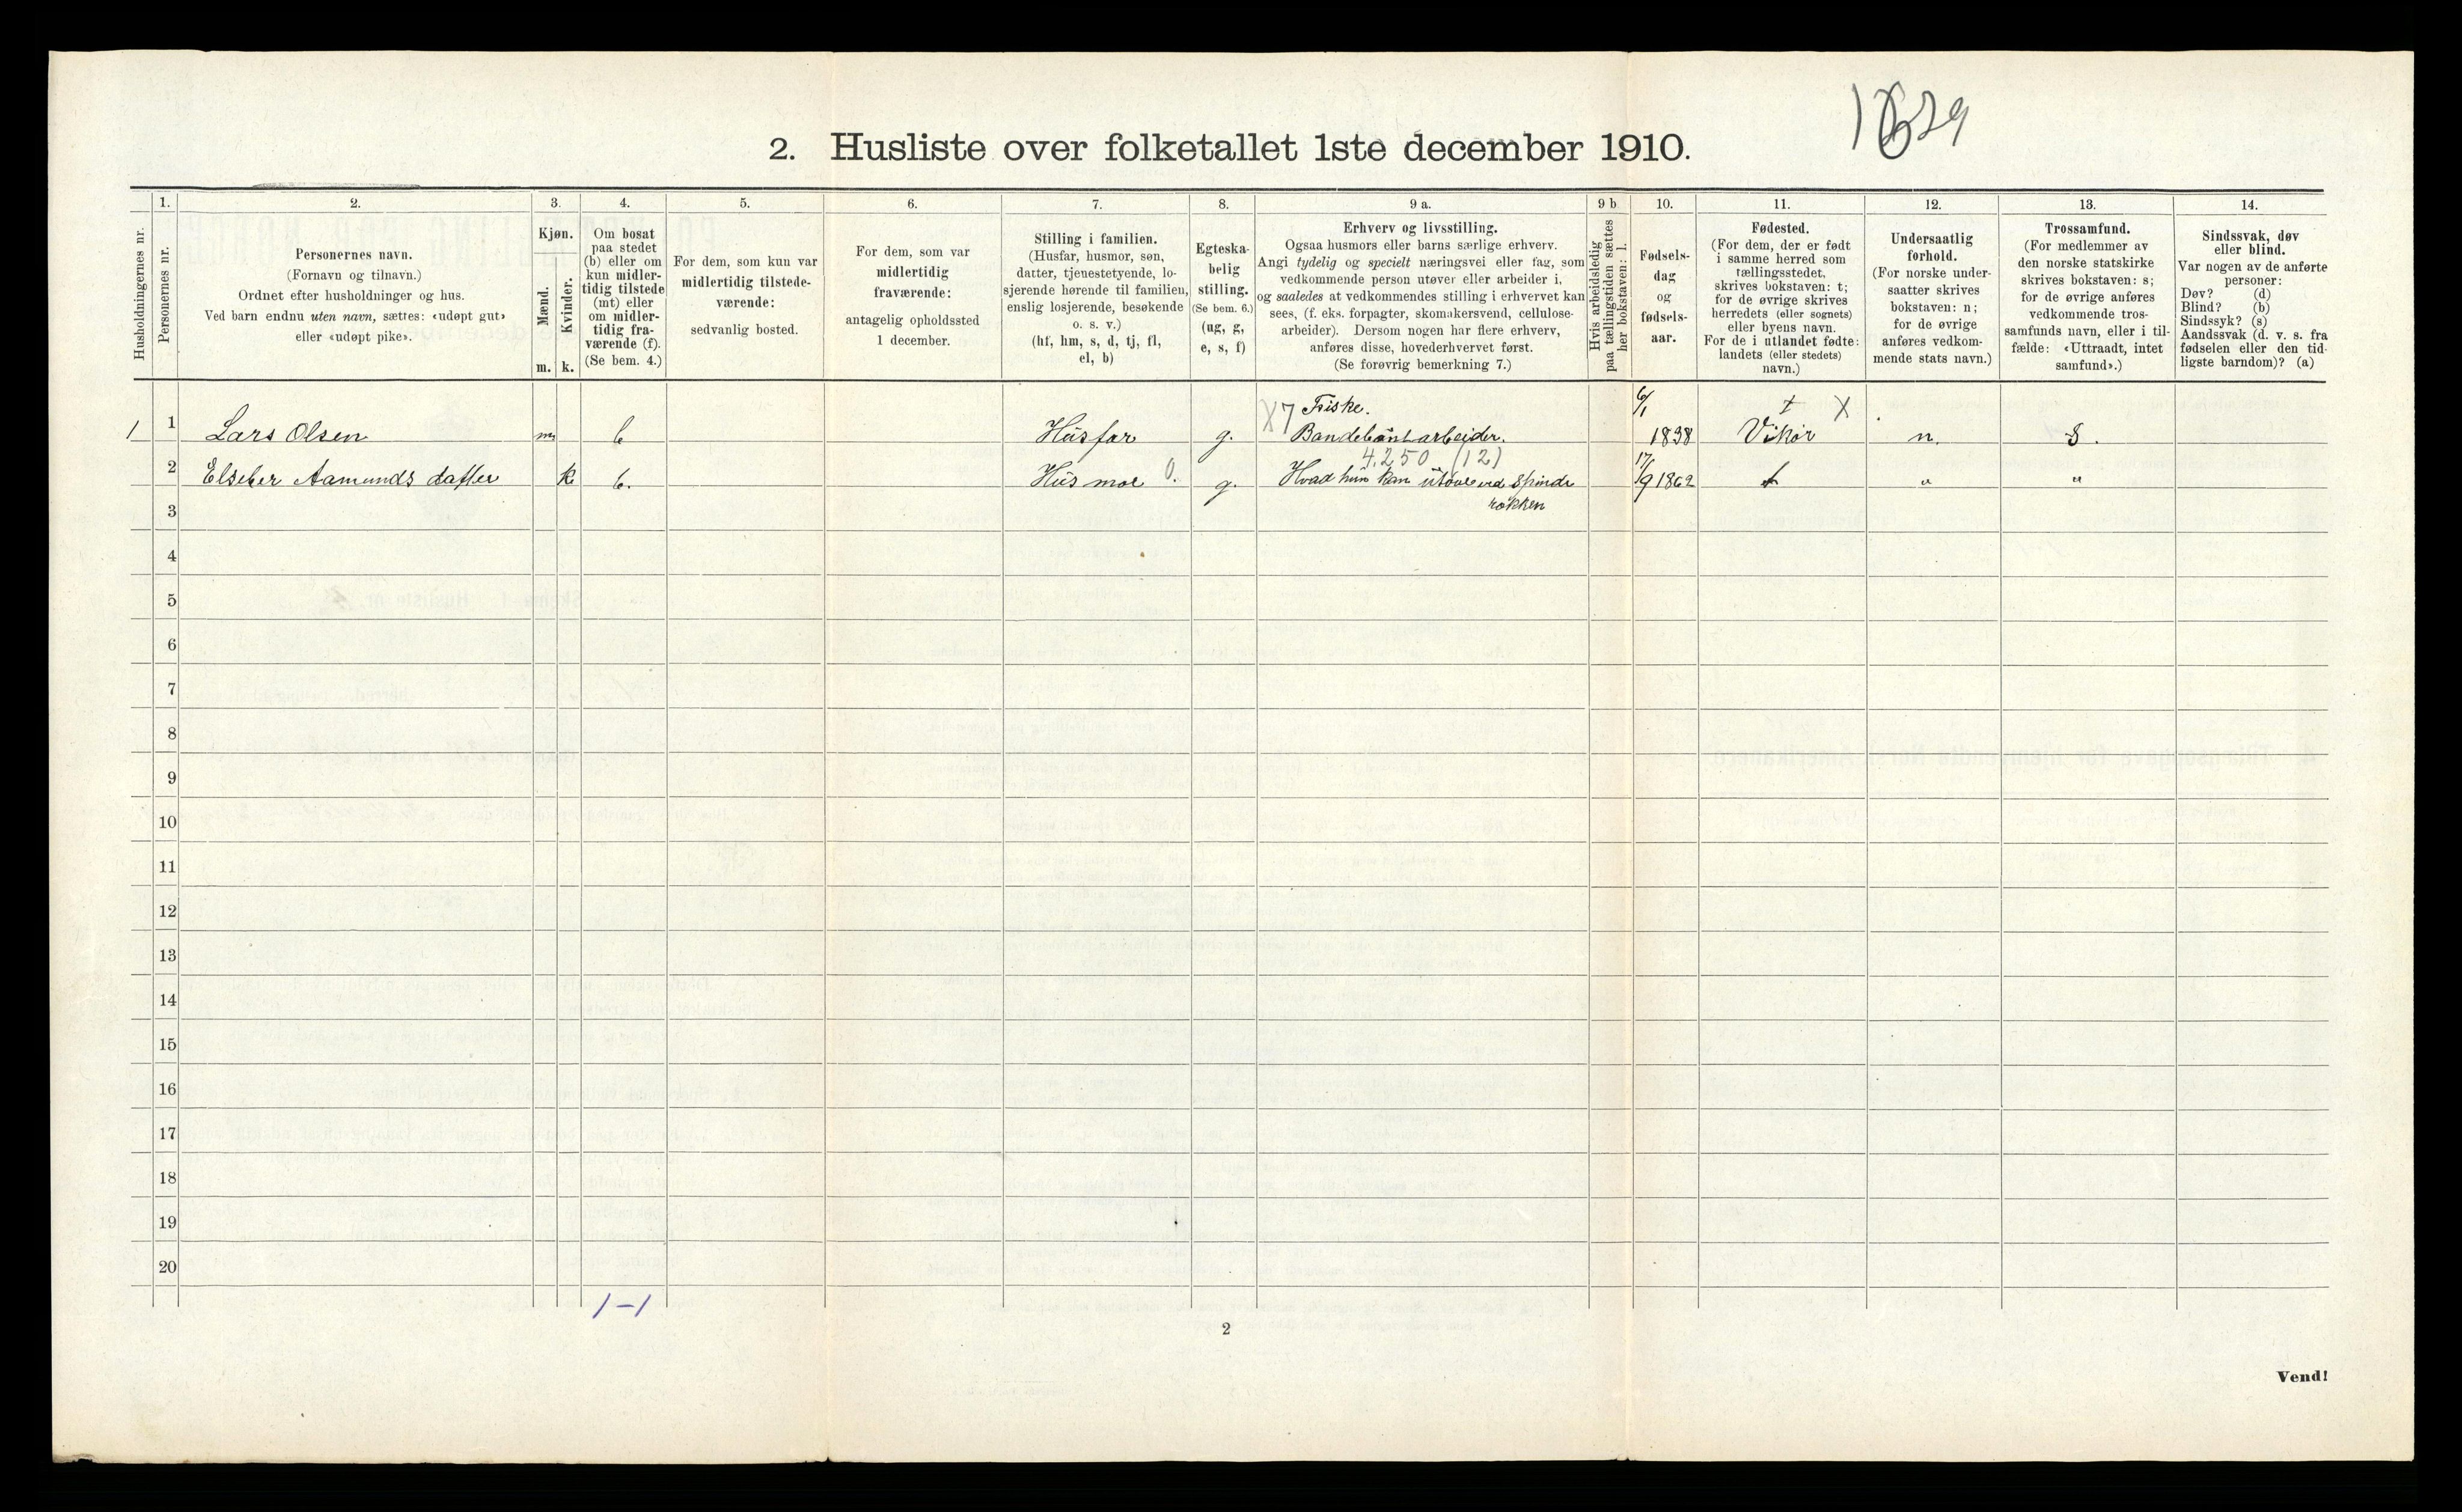 1629
2. Husliste over folketallet 1ste december 1910.
Husholdningernes nr.
1.
Personernes nr.
2.
Personernes navn.
(Fornavn og tilnavn.)
Ordnet efter husholdninger og hus.
Ved barn endnu uten navn, sættes: «udøpt gut»
eller «udøpt pike».
3.
Kjøn.
Mænd.
Kvinder.
m. k.
4.
Om bosat
paa stedet
(b) eller om
kun midler-
tidig tilstede
(mt) eller
om midler-
tidig fra-
værende (f).
(Se bem. 4.)
5.
For dem, som kun var
midlertidig tilstede-
værende:
sedvanlig bosted.
6.
For dem, som var
midlertidig
fraværende:
antagelig opholdssted
1 december.
7.
Stilling i familien.
(Husfar, husmor, søn,
datter, tjenestetyende, lo-
sjerende hørende til familien,
enslig losjerende, besøkende
o. s. v.)
(hf, hm, s, d, tj, fl,
el, b)
8.
Egteska-
belig
stilling.
(Se bem. 6.)
(ug, g,
e, s, f)
9 a.
Erhverv og livsstilling.
Ogsaa husmors eller barns særlige erhverv.
Angi tydelig og specielt næringsvei eller fag, som
vedkommende person utøver eller arbeider i,
og saaledes at vedkommendes stilling i erhvervet kan
sees, (f. eks. forpagter, skomakersvend, cellulose-
arbeider). Dersom nogen har flere erhverv,
anføres disse, hovederhvervet først.
(Se forøvrig bemerkning 7.)
9 b
Hvis arbeidsledig
paa tællingstiden sættes
her bokstaven: l.
10.
Fødsels-
dag
og
fødsels-
aar.
11.
Fødested.
(For dem, der er født
i samme herred som
tællingsstedet,
skrives bokstaven: t;
for de øvrige skrives
herredets (eller sognets)
eller byens navn.
For de i utlandet fødte:
landets (eller stedets)
navn.)
12.
Undersaatlig
forhold.
(For norske under-
saatter skrives
bokstaven: n;
for de øvrige
anføres vedkom-
mende stats navn.)
13.
Trossamfund.
(For medlemmer av
den norske statskirke
skrives bokstaven: s;
for de øvrige anføres
vedkommende tros-
samfunds navn, eller i til-
fælde: «Uttraadt, intet
samfund».)
14.
Sindssvak, døv
eller blind.
Var nogen av de anførte
personer:
Døv? (d)
Blind? (b)
Sindssyk? (s)
Aandssvak (d. v. s. fra
fødselen eller den tid-
ligste barndom)? (a)
X7 Fiske. 6/1 t X
1 1 Lars Olsen m b Husfar g. arbeider. 1838 Vikør n. S.
4.250 (12)
2 Elseber Aamunds datter k b. Husmor 0. g. Hvad hun kan utøve ved spinde 17/9 1862 t " "
rokken
3
4
5
6
7
8
9
10
11
12
13
14
15
16
17
18
19
20
1-1
2
Vend!